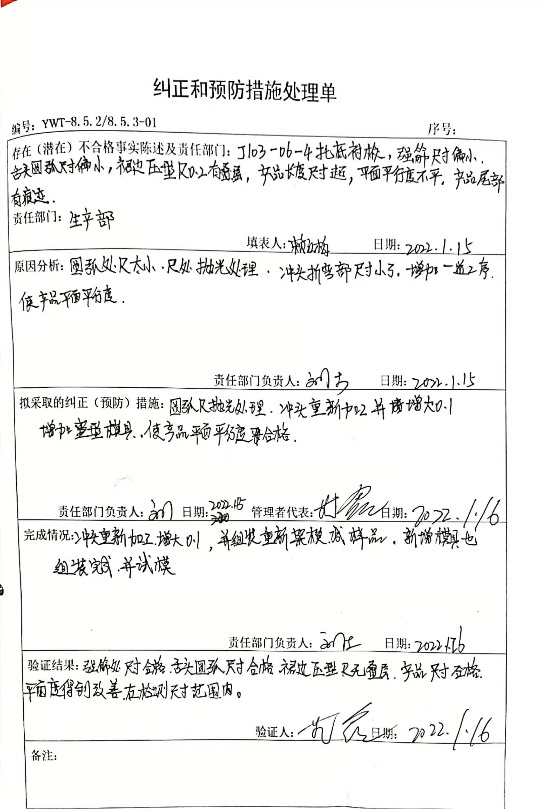 纠正和预防措施处理单
编号: YWT-8.5.2/8.5.3-01 序号:
存在(潜在)不合格事实陈述及责任部门: J103-06-4 托底衬板, 强筋尺寸偏小.
舌头圆弧尺寸偏小, 裙边压型R0.2有叠层, 产品长度尺寸超, 平面平行度不平, 产品尾部
有痕迹.
责任部门: 生产部
填表人: 日期: 2022.1.15
原因分析: 圆弧处R太小.R处抛光处理. 冲头折弯部尺寸小了. 增加一道工序.
使产品平面平行度.
责任部门负责人: 日期: 2022.1.15
拟采取的纠正(预防)措施: 圆弧R抛光处理. 冲头重新加工并增大0.1
增加整型模具. 使产品平面平行度合格.
责任部门负责人: 日期: 2022.1.15 管理者代表: 日期: 2022.1.16
完成情况: 冲头重新加工增大0.1, 并组装重新架模试样品. 新增模具也
组装完成并试模
责任部门负责人: 日期: 2022.1.16
验证结果: 强筋处尺寸合格.舌头圆弧尺寸合格.裙边压型R无叠层.产品尺寸合格.
平面度得到改善.在检测尺寸范围内。
验证人: 日期: 2022.1.16
备注: